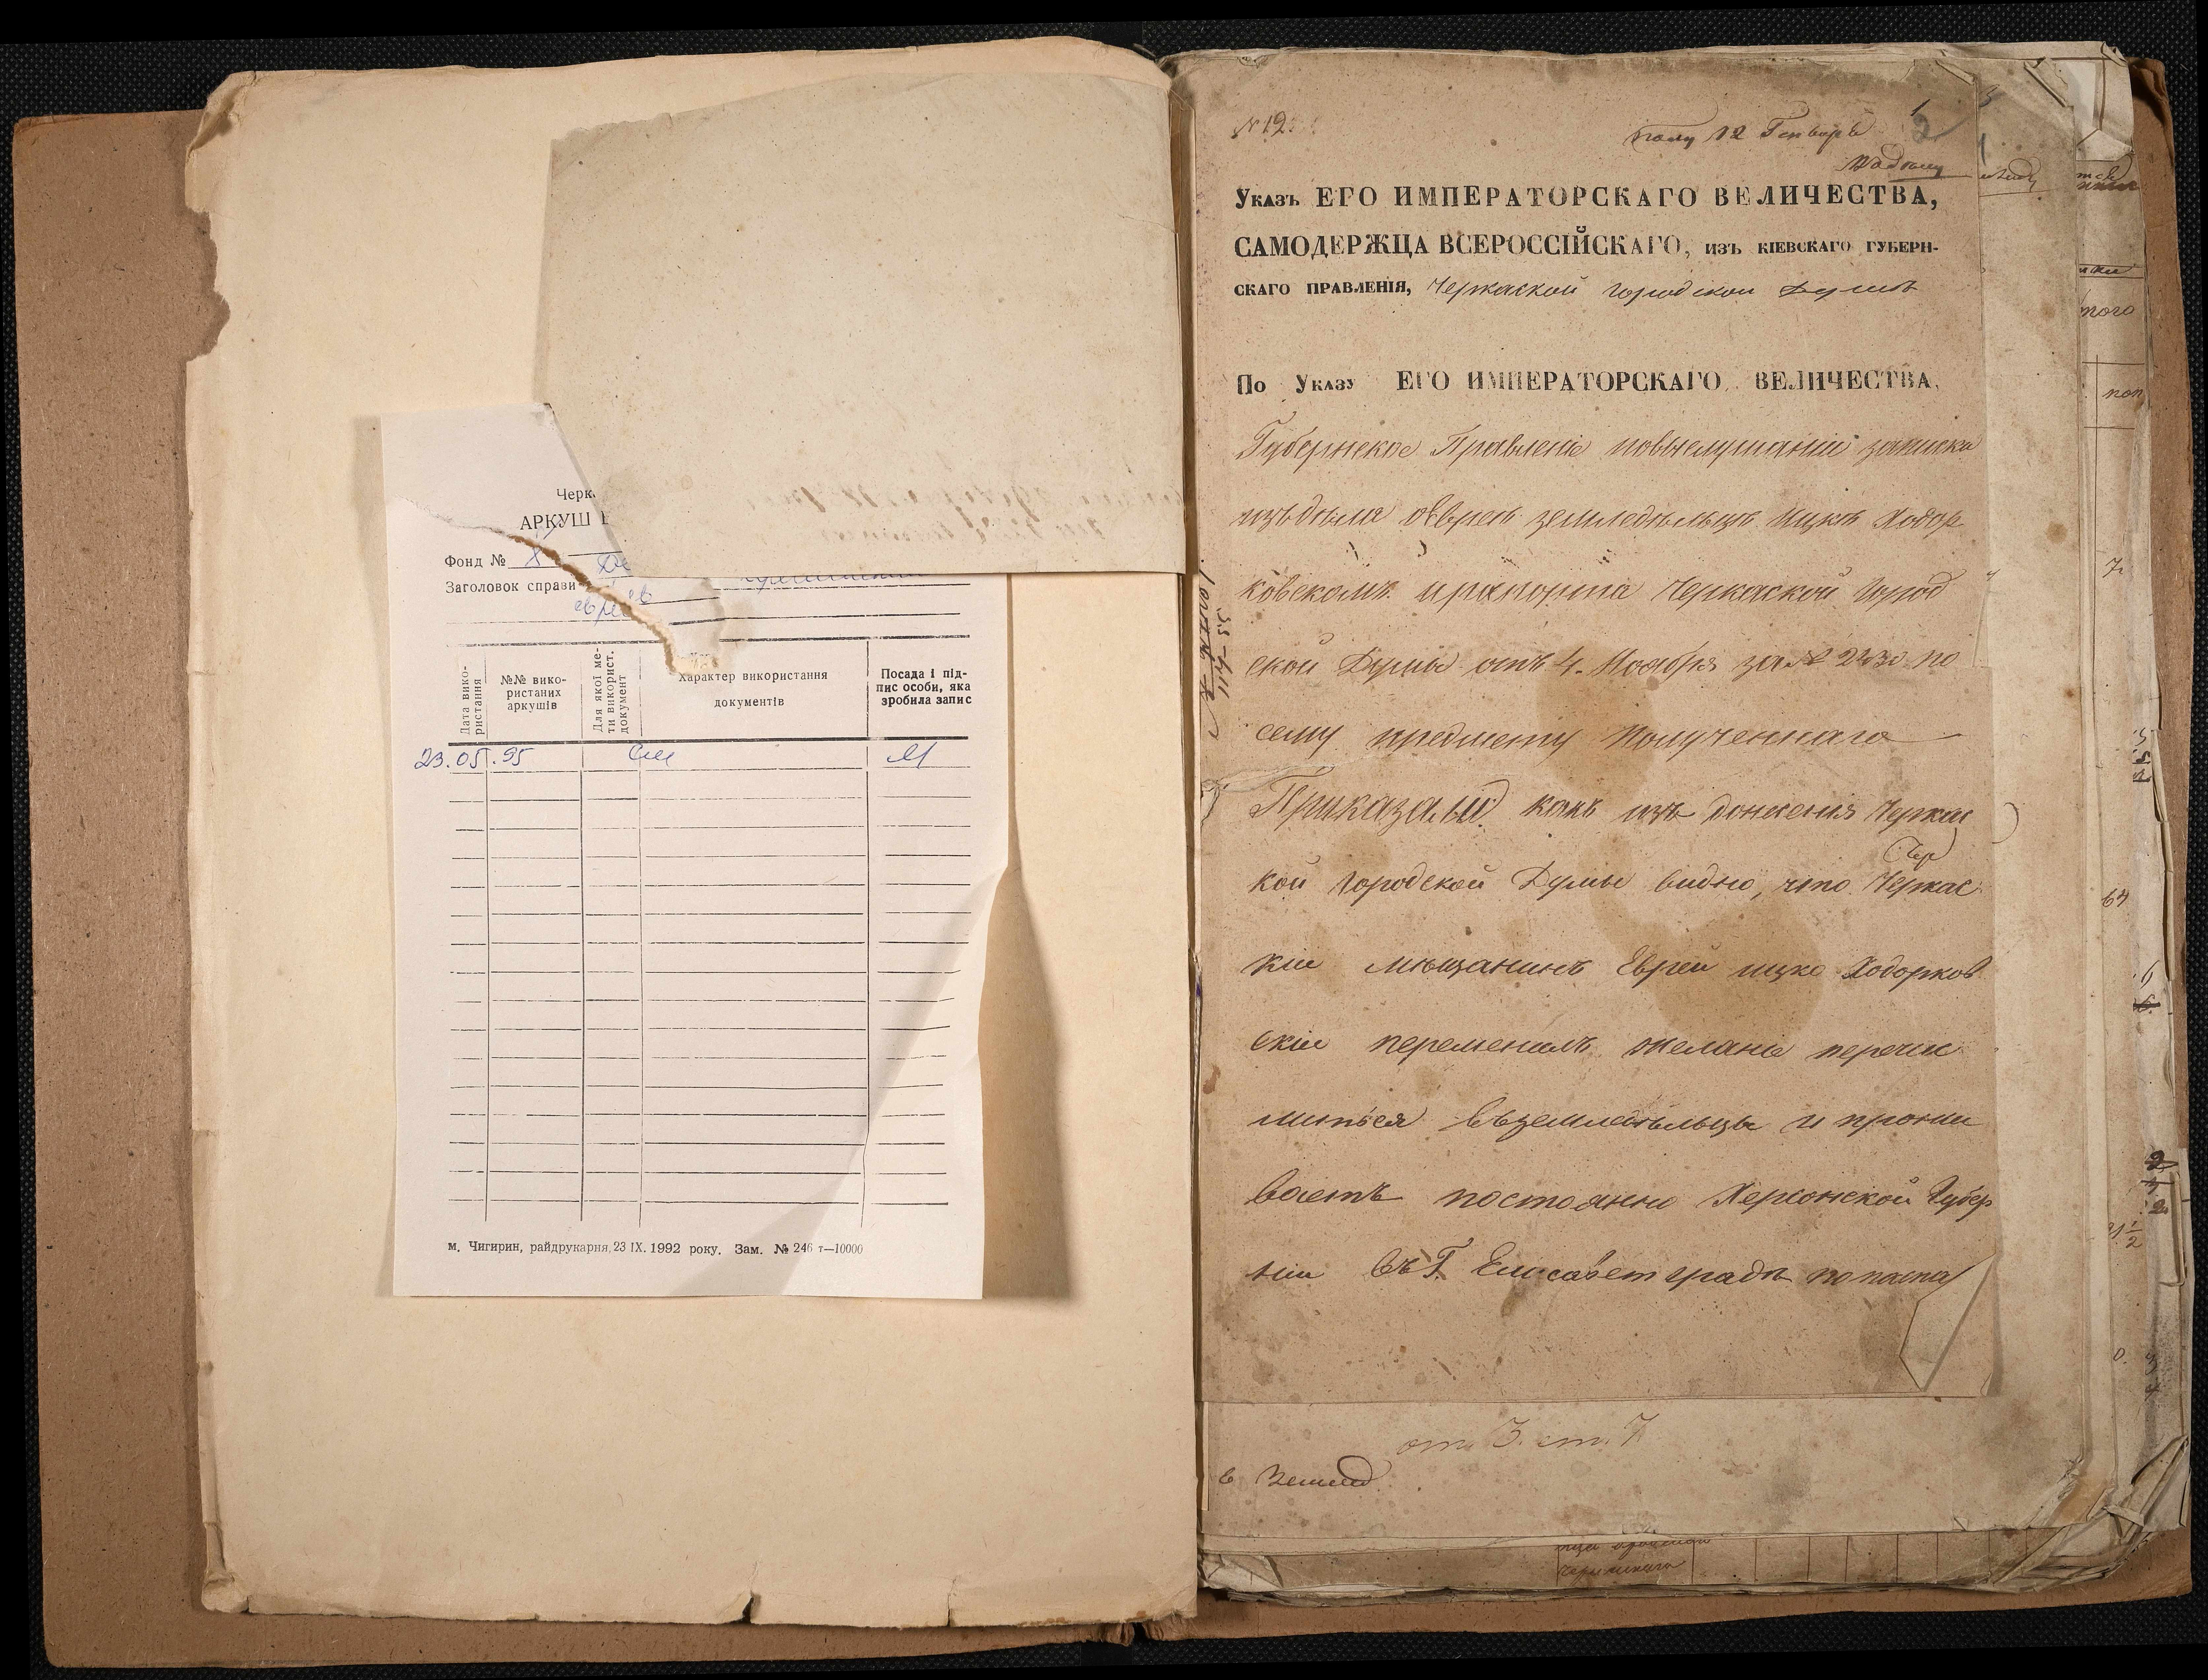 Черк
АРКУШ
Фонд №
Заголовок справи
євреїв
Дата вико-
ристання
№№ вико-
ристаних
аркушів
Для якої ме-
ти використ.
документ
Характер використання
документів
Посада і під-
пис особи, яка
зробила запис
23.05.95
м. Чигирин, райдрукарня, 23 IX. 1992 року. Зам. № 246 т—10000
№ 12.
пол 12 Генваря
1
2
Указъ ЕГО ИМПЕРАТОРСКАГО ВЕЛИЧЕСТВА,
САМОДЕРЖЦА ВСЕРОССІЙСКАГО, изъ кіевскаго губерн-
скаго правленія, Черкаской городской Думѣ
По Указу ЕГО ИМПЕРАТОРСКАГО ВЕЛИЧЕСТВА,
Губернское Правленіе повыслушаніи записки
изъдѣла обѣвреѣ земледѣльцѣ Ицкѣ Ходор
ковскомъ ирапорта Черкаской Город
ской Думы отъ 4. Ноября за № 2430 по
сему предмету Полученнаго
Приказали: какъ изъ донесенія Черкас
кой городской Думы видно, что Черкас
кіи мѣщанинъ Еврей ицко Ходорков
скіи переменилъ желаніе перечис
литься въземледѣльцы и прожи
ваетъ постоянно Херсонской Губер
ніи въ Г. Елисаветградѣ попаспо
от. 3. ст. 7
в Землед.